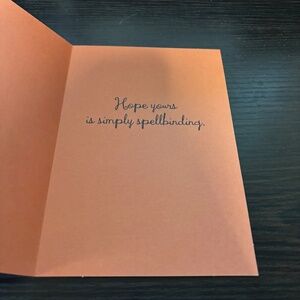 Hope yours
is simply spellbinding.